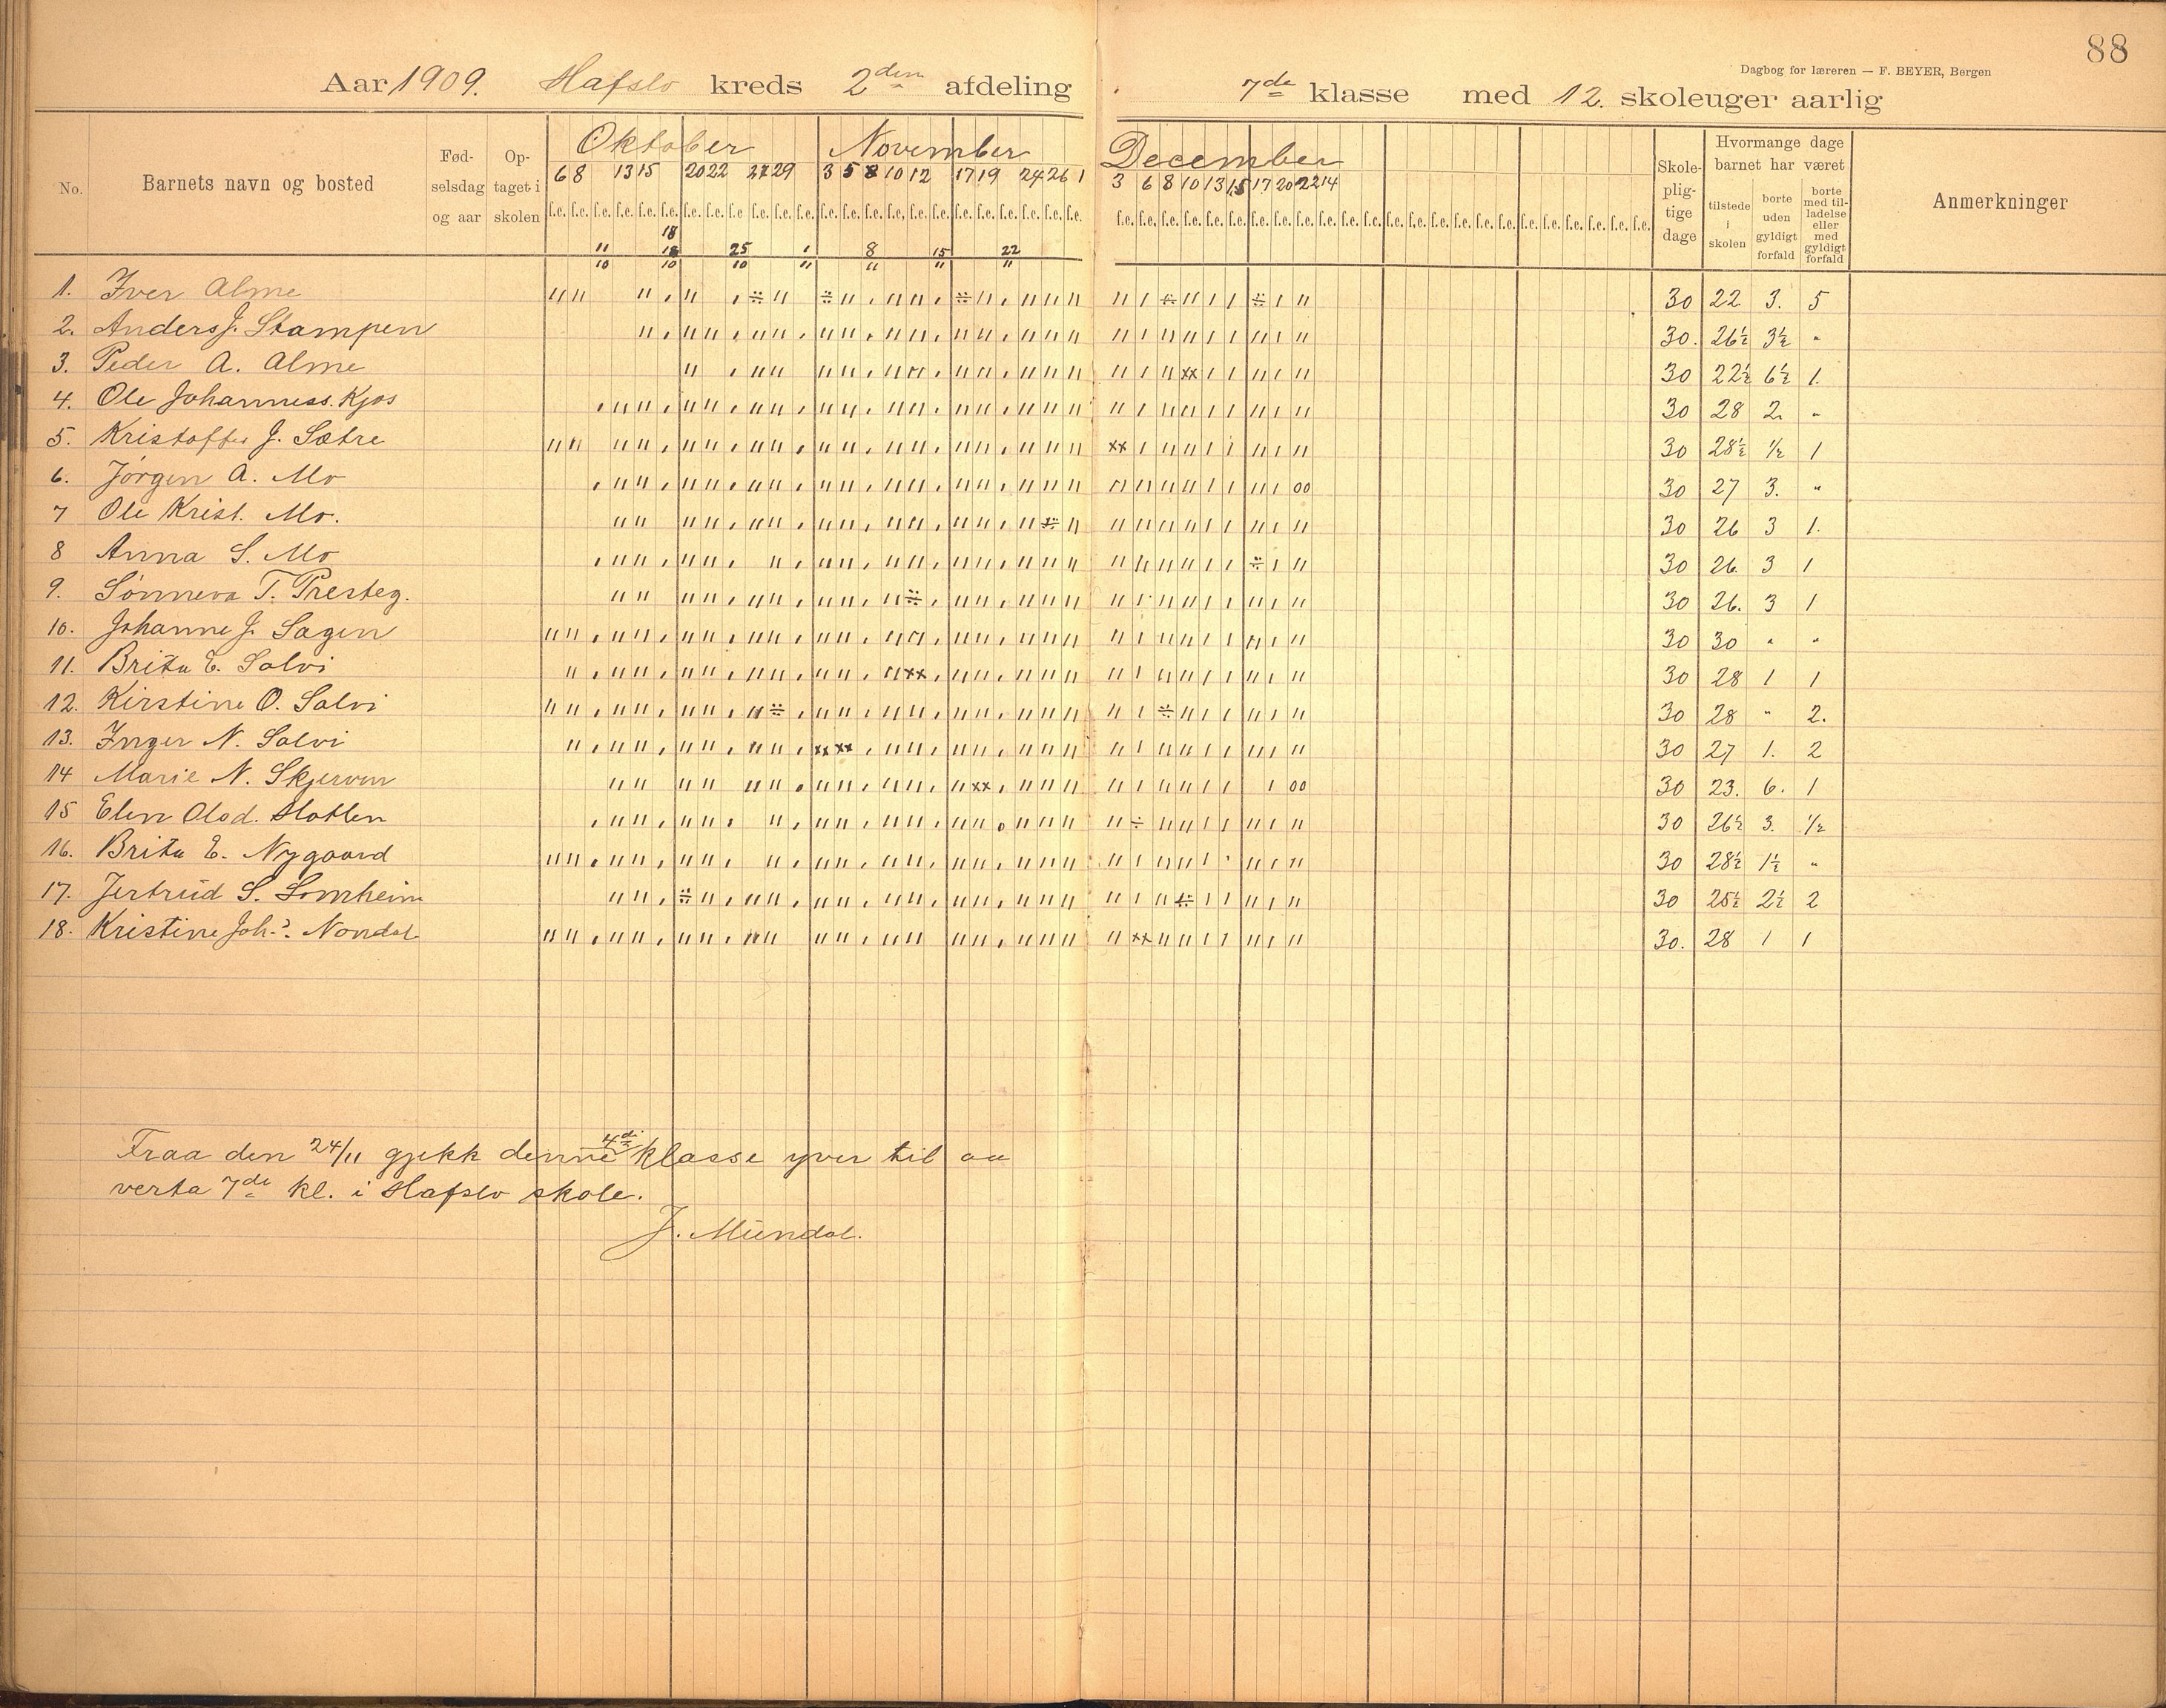 88
Dagbog for læreren — F. BEYER, Bergen
Aar 1909. Hafslo kreds 2den afdeling 7de klasse med 12. skoleuger aarlig
No. Barnets navn og bosted Fødselsdag og aar Optaget i skolen Oktober November December Skolepligtige dage Hvormange dage barnet har været Anmerkninger
tilstede i skolen borte uden gyldigt forfald borte med tilladelse eller med gyldigt forfald
6 8 13 15 20 22 27 29 3 5 8 10 12 17 19 24 26 1 3 6 8 10 13 15 17 20 22 14
11/10 18/10 25/10 1/11 8/11 15/11 22/11
1. Iver Alme 30 22 3. 5
2. Anders J. Stampen 30. 26½ 3½ "
3. Peder A. Alme 30 22½ 6½ 1.
4. Ole Johanness. Kjos 30 28 2. "
5. Kristoffer J. Sætre 30 28½ ½ 1
6. Jørgen A. Mo 30 27 3. "
7 Ole Krist. Mo. 30 26 3 1.
8 Anna S. Mo 30 26. 3 1
9. Sønneva T. Presteg. 30 26. 3 1
10. Johanne J. Sagen 30 30 " "
11. Brita E. Solvi 30 28 1 1
12. Kirstine O. Solvi 30 28 " 2.
13. Inger N. Solvi 30 27 1. 2
14 Marie N. Skjerven 30 23. 6. 1
15 Elen Olsd. Hotlen 30 26½ 3. ½
16. Brita E. Nygaard 30 28½ 1½ "
17. Jertrud S. Somheim 30 25½ 2½ 2
18. Kristine Joh. Nondal 30. 28 1 1
Fraa den 24/11 gjekk denne 4de klasse yver til aa
verta 7de kl. i Hafslo skole.
J. Mundal.